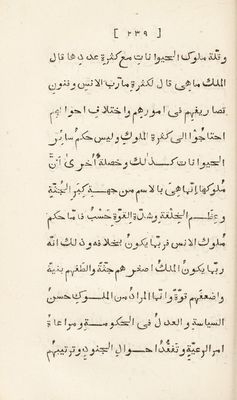 [ ٢٣٩ ]
وقلة ملوك الحيوانات مع كثرة عددها قال
الملك ما هي قال لكثرة مآرب الانس وفنون
تصاريفهم في امورهم واختلاف احوالهم
احتاجوا الى كثرة الملوك وليس حكم سائر
الحيوانات كذلك وخصلة أخرى أنّ
ملوكها إنّما هي بالاسم من جهة كبر الجثّة
وعظم الخلقة وشدّة القوّة حسب فامّا حكم
ملوك الانس فربّما يكون بخلاف وذلك انّه
ربّما يكون الملك اصغرهم جثّة والطفهم بنية
واضعفهم قوّة وانّما المراد من الملوك حسن
السياسة والعدل فى الحكومة ومراعاة
امر الرعيّة وتفقّد احوال الجنود وترتيبهم